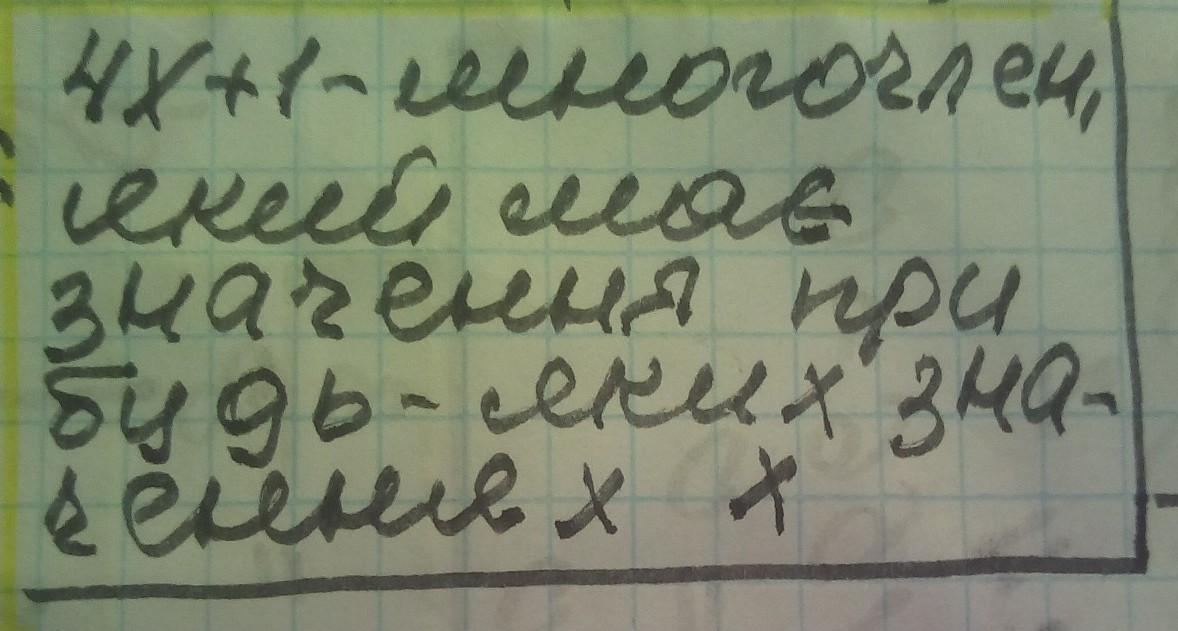 4х+1-многочлен,
який має
значення при
будь-яких зна-
ченнях х